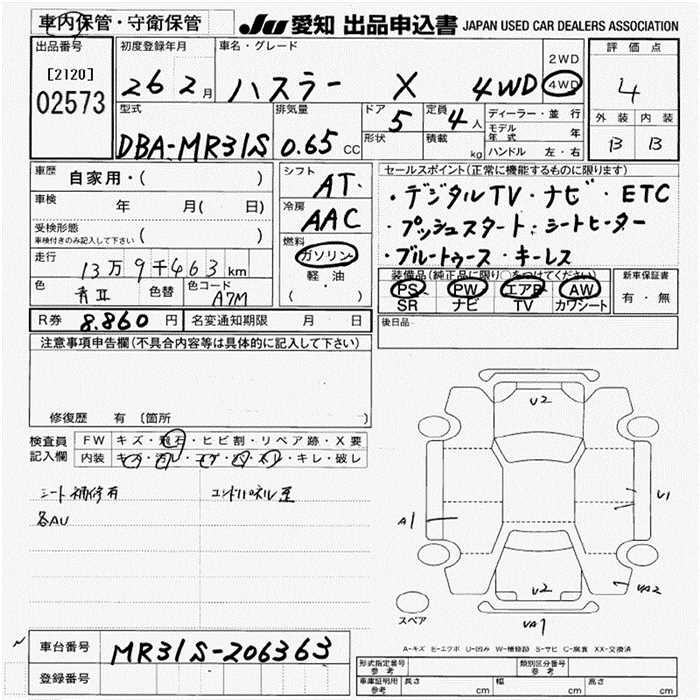 車内保管・守衛保管
JU 愛知 出品申込書 JAPAN USED CAR DEALERS ASSOCIATION
出品番号
[2120]
02573
初度登録年月
26 2月
車名・グレード
ハスラー X 4WD
2WD
4WD
評価点
4
外装 内装
B B
型式
DBA-MR31S
排気量
0.65 CC
ドア
5
形状
定員
4人
積載
kg
ディーラー・並行
モデル年式 年
ハンドル 左・右
車歴
自家用・( )
車検
年 月( 日)
受検形態
車検付きのみ記入して下さい ( )
走行
13万9千463km
色
青II
色替
色コード
A7M
シフト
AT
冷房
AAC
燃料
ガソリン
軽・油
( )
セールスポイント(正常に機能するものに限ります)
・デジタルTV・ナビ・ETC
・プッシュスタート・シートヒーター
・ブルートゥース・キーレス
装備品(純正品に限り○をつけてください)
PS PW エアB AW
SR ナビ TV カワシート
新車保証書
有・無
R券 8.860 円
名変通知期限 月 日
後日品
注意事項申告欄(不具合内容等は具体的に記入して下さい)
修復歴 有 〔箇所
検査員記入欄
FW キズ・飛石・ヒビ割・リペア跡・X要
内装 ・キレ・破レ
シート補修有
エンドパネル歪
各AU
U2
U1
A1
U2
UA2
UA1
スペア
A-キズ E-エクボ U-凹み W-補修跡 S-サビ C-腐食 XX-交換済
車台番号
MR31S-206363
登録番号
形式指定番号
参考
類別区分番号
参考
車庫証明用
参考
長さ cm 幅 cm 高さ cm